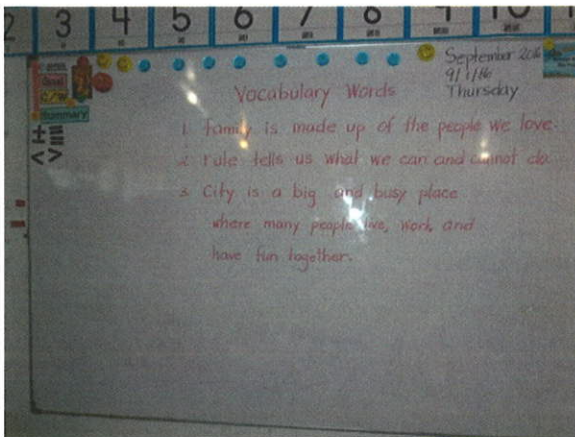 2 3 4 5 6 7 8 9 10 1
September 2016
9/1/16
Thursday
Summary
Vocabulary Words
1. family is made up of the people we love.
2. rule tells us what we can and cannot do.
3. City is a big and busy place
where many people live, work, and
have fun together.
+ =
< >